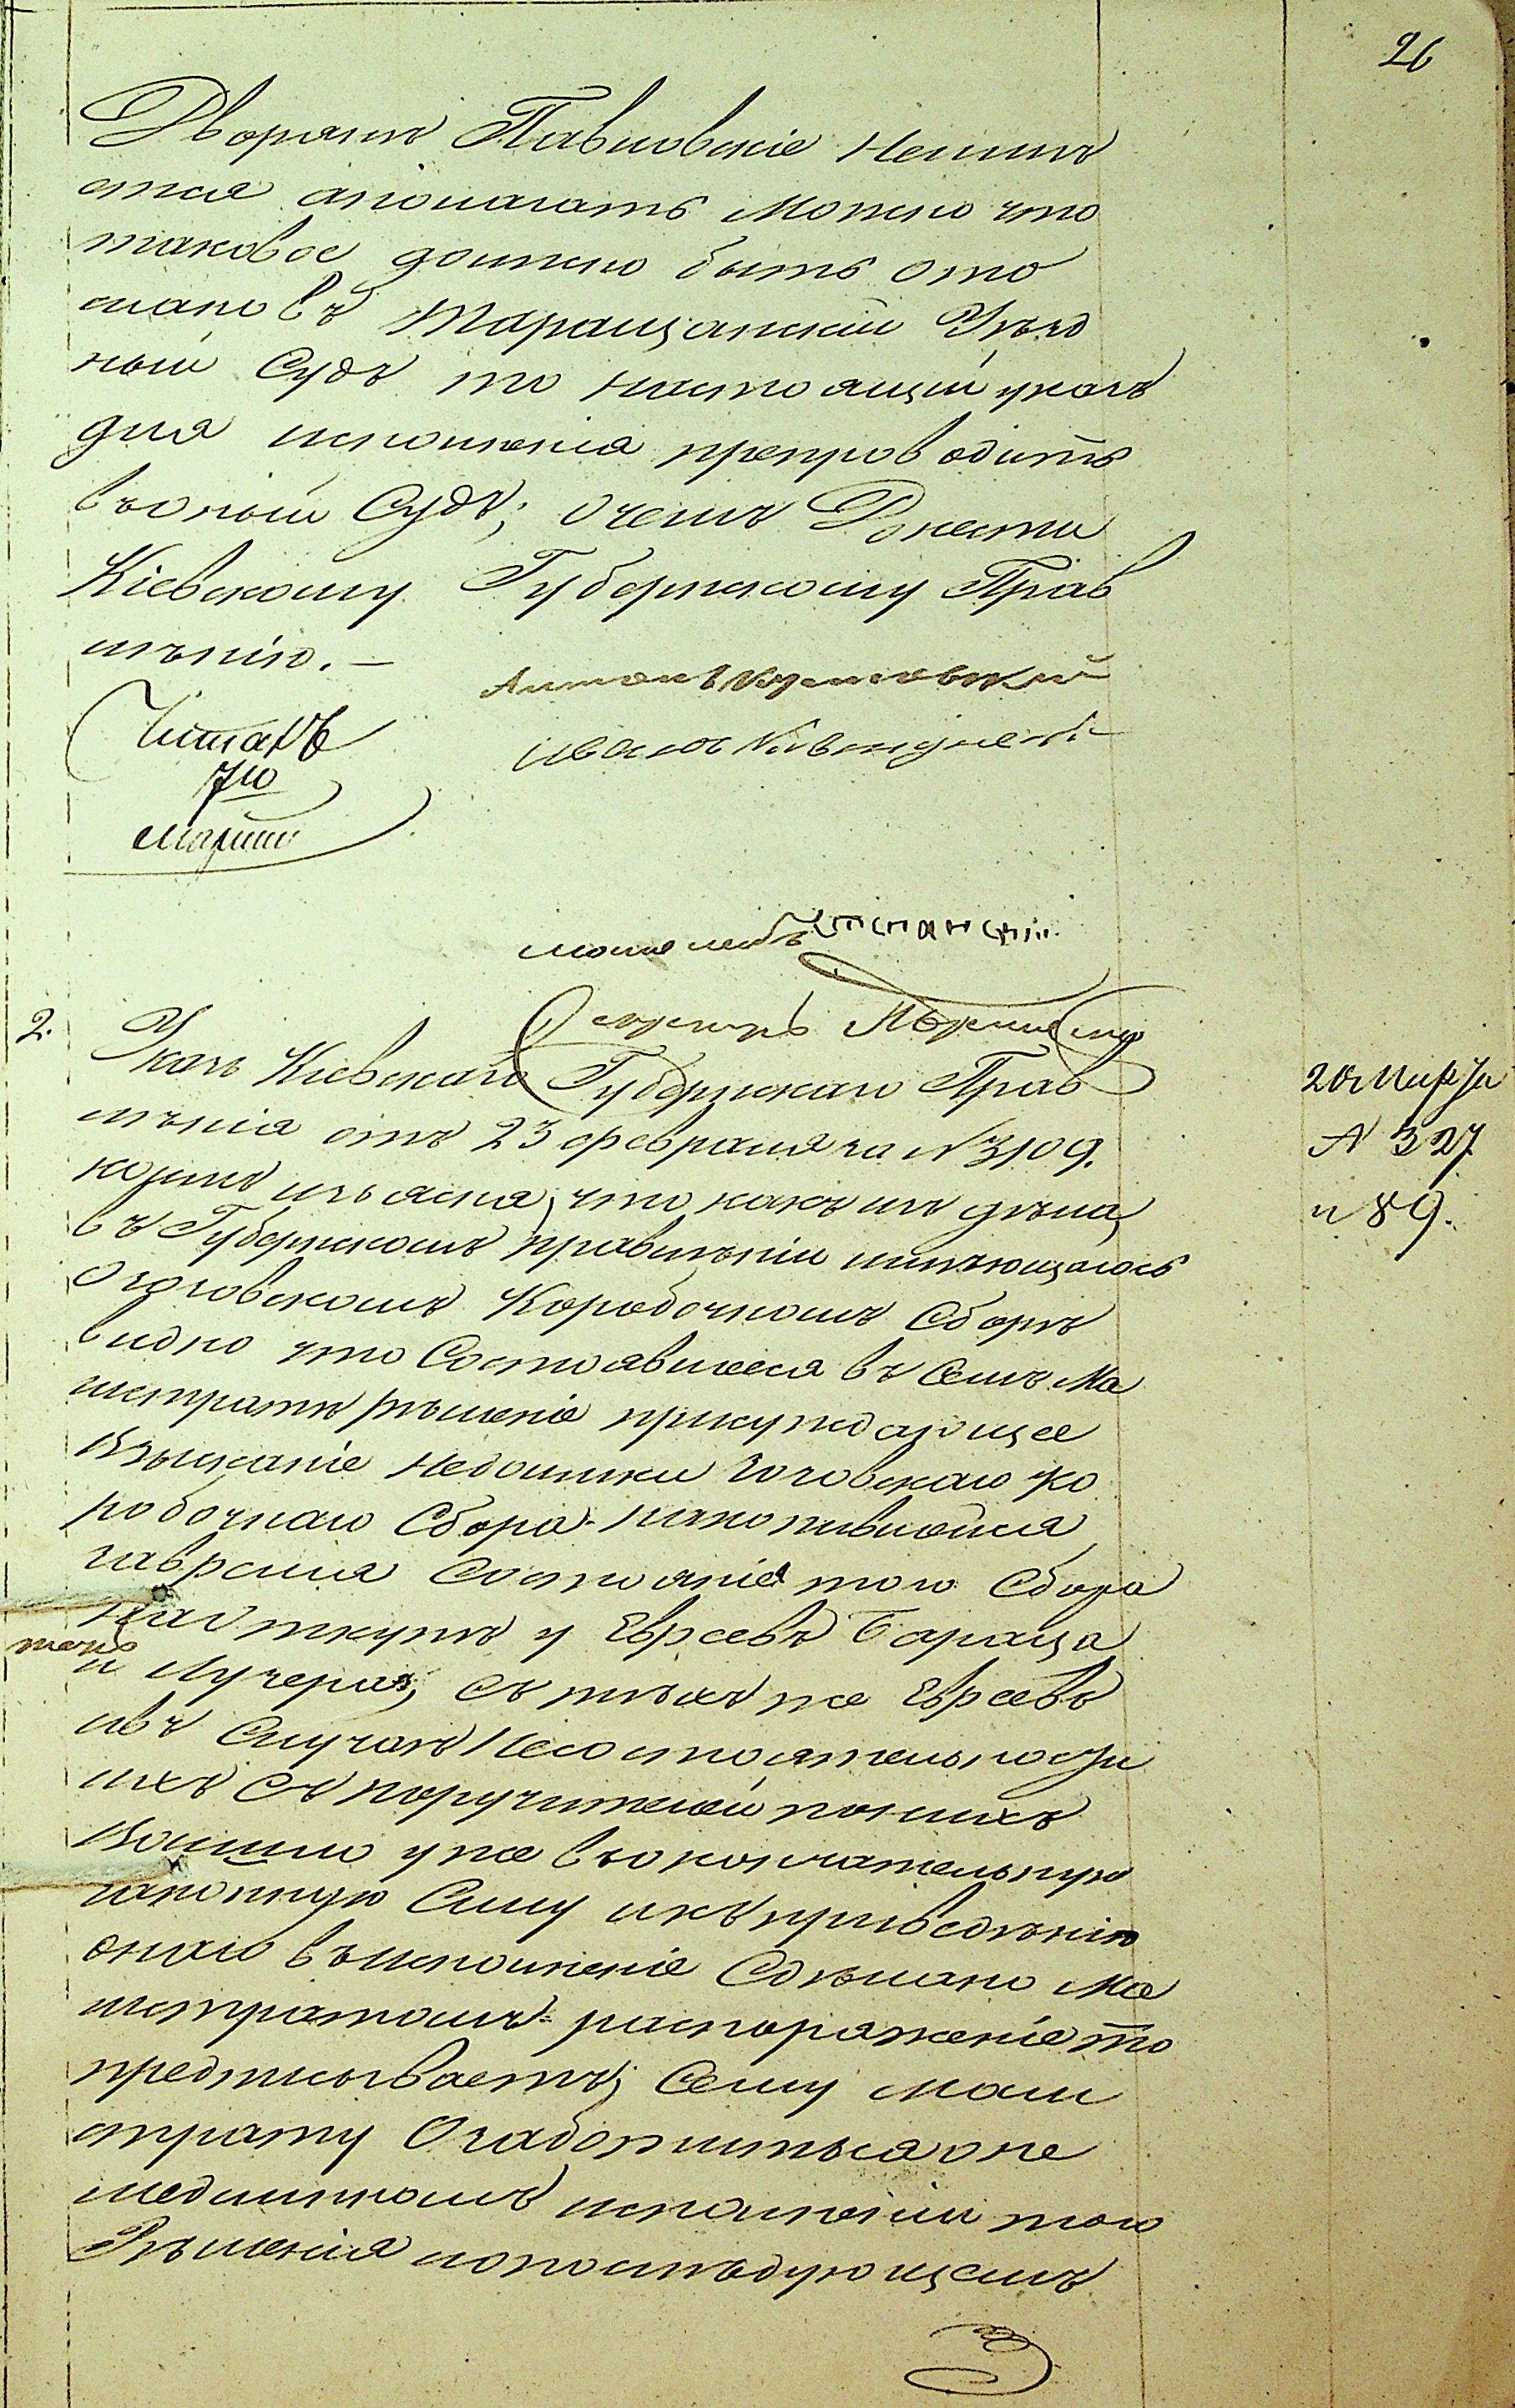 26
Дворянъ Павловскіе Неимѣ
ется аполагать можно что
таковое должно быть ото
слано въ Таращанскій Уѣзд
ный Судъ то настоящій указъ
для исполненія препроводить
въоный Судъ; очемъ Донести
Кіевскому Губернскому Прав
лѣнію. —
Читалъ
7го
марта
Иванъ
2.
Указъ Кіевскаго Губернскаго Прав
лѣнія отъ 23 февраля за № 3109.
коимъ изъясня, что какъ изъ дѣла
въ Губернскомъ правлѣніи имѣющагось
Огоговскомъ Коробочномъ Сборѣ
видно что Состоявшееся въ Семъ Ма
истратѣ рѣшеніе присуждающее
Взысканіе недоимки Гоговскаго Ко
робочнаго Сбора накопившейся
завремя Состоянія того Сбора
на откупѣ у Евреевъ Бараца
и Лучера, съ тѣхъ же Евреевъ
ивъ Случаѣ Несостоятельности
ихъ съ поручителей поникъ
Вошло уже въокончательную
законную Силу икъ приведѣнію
онаго въисполненіе Сдѣлано Ма
истратомъ распоряженіе то
предписываетъ Сему маги
страту Озаботиться оне
медлѣнномъ исполненіи того
Рѣшенія ипопослѣдующемъ
20 Марта
№ 327
и 89.